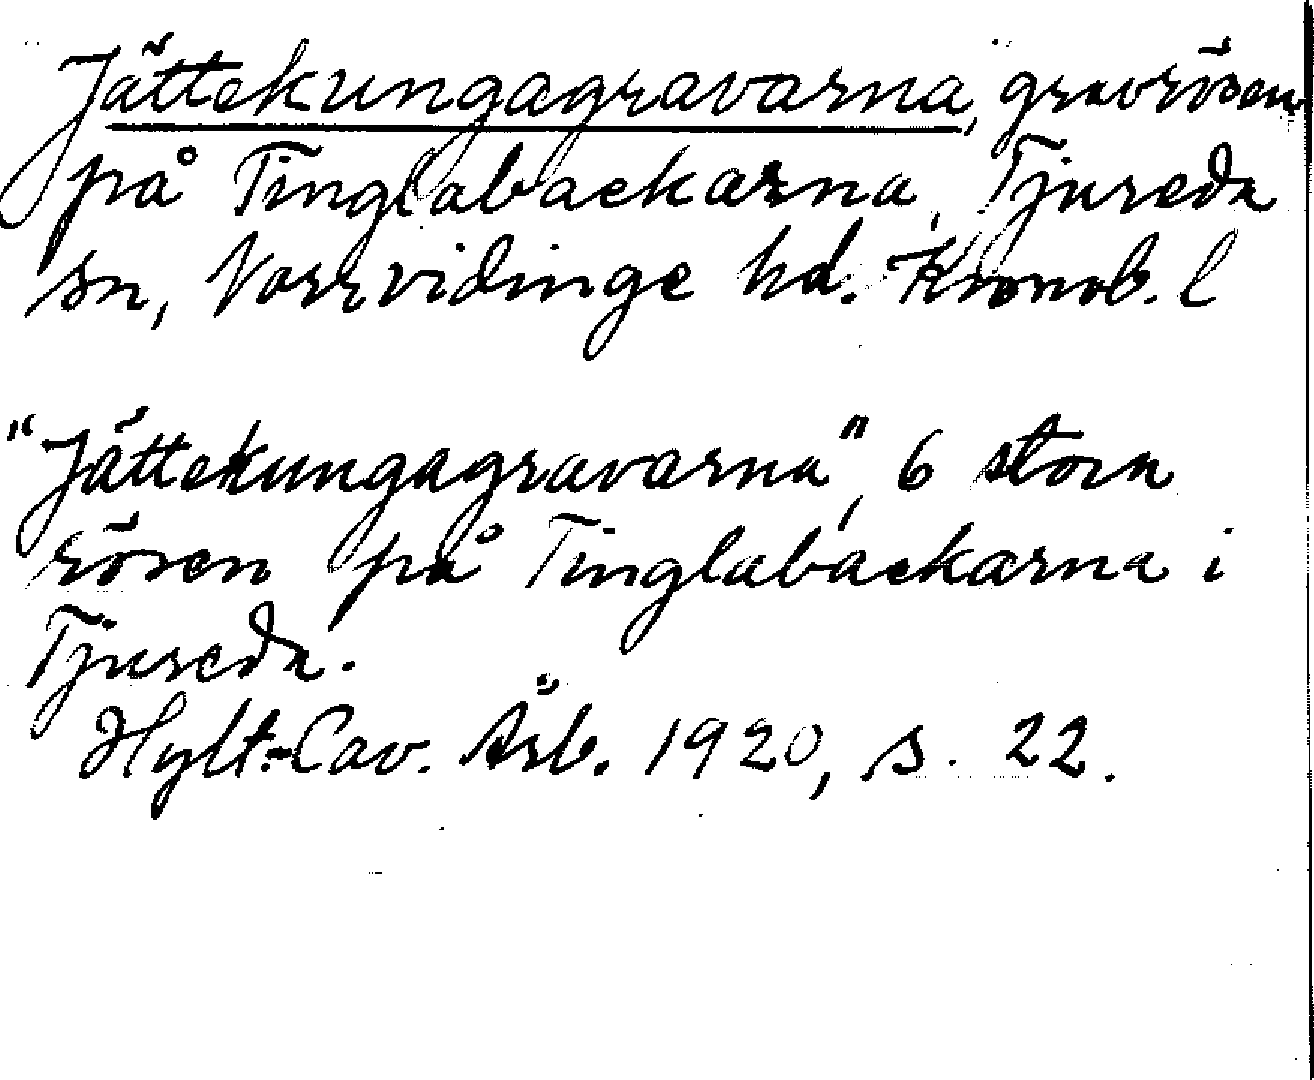 Jättekungagravarna, gravrösen
på Tinglabackarna, Tjureda
sn, Norrvidinge hd. Kronob. l
"Jättekungagravarna", 6 stora
rösen på Tinglabackarna i
Tjureda.
Hylt.-Cav. Årb. 1920, s. 22.